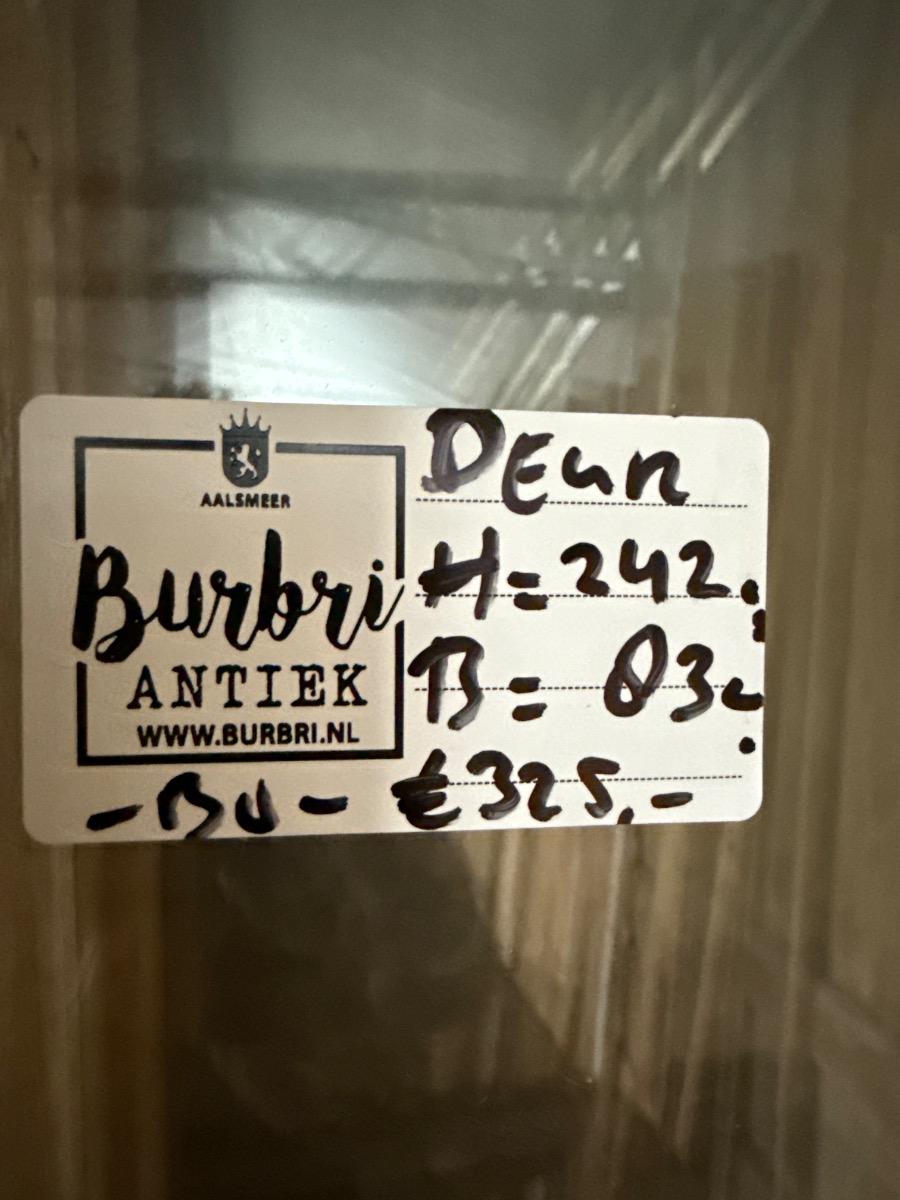 AALSMEER
Burbri
ANTIEK
WWW.BURBRI.NL
DEUR
H=242.
B= 83
- BU - €325,-